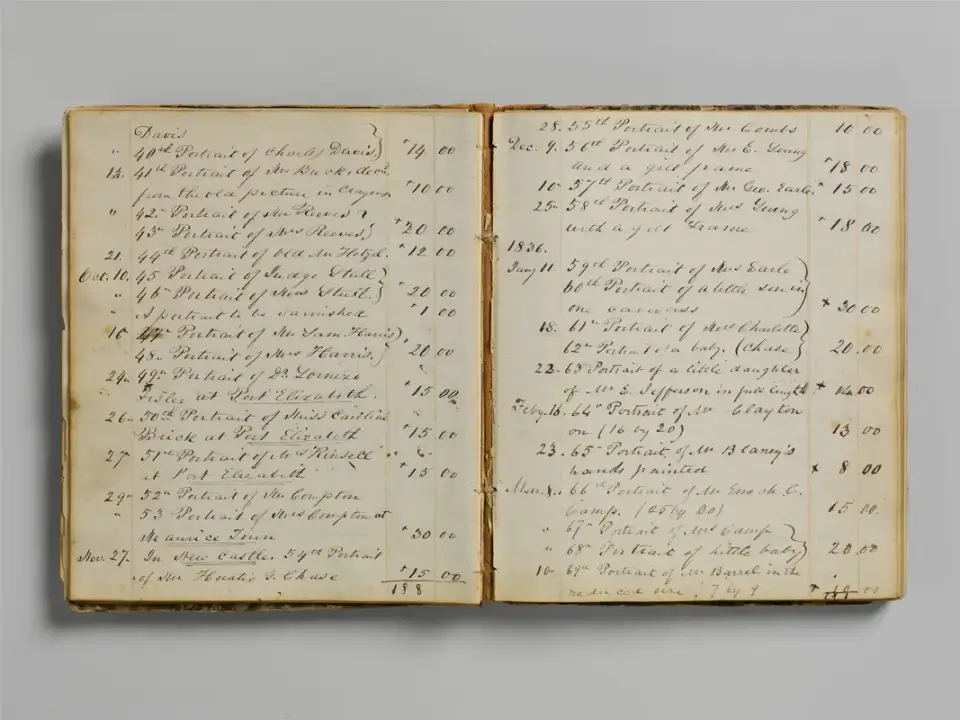 Davis
" 40th Portrait of Charles Davis. } 14 00
13. 41st Portrait of Mr Buck, dec'd.
from the old picture in Crayon 10 00
" 42n Portrait of Mr Reeves
43n Portrait of Mrs Reeves. } 20 00
21. 44th Portrait of Old Mr Hotzel. 12 00
Oct. 10. 45 Portrait of Judge Stull
" 46n Portrait of Mrs Stull. } 20 00
" A portrait to be varnished 1 00
16 47n Portrait of Mr Sam. Harris
48n Portrait of Mrs Harris. } 20 00
24. 49n Portrait of Dr Lorenzo
Fisler at Port Elizabeth. 15 00
26. 50th Portrait of Miss Caroline
Brick at Port Elizabeth 15 00
27 51st Portrait of
at Port Elizabeth 15 00
29 52n Portrait of Mr Compton
" 53 Portrait of Mrs Compton at
Maurice Town 30 00
Nov. 27. In New Castle. 54th Portrait
of Mr Horatio G. Chase 15 00
188
28. 55th Portrait of Mr Combs 10 00
Dec. 9. 56th Portrait of Mr E. Young
and a gilt frame 18 00
10 57th Portrait of Mr Geo. Earle. 15 00
25 58th Portrait of Mrs Young
with a gilt frame 18 00
1836.
Jany 11. 59d Portrait of Mrs Earle
60th Portrait of a little son in
one canvass } + 30 00
18. 61st Portrait of Mrs Charlotte
62n Portrait of a baby. (Chase) } 20.00
22 63d Portrait of a little daughter
of Mr E. Jefferson in full length + 00
Feby. 16. 64n Portrait of Mr Clayton
on (16 by 20) 13 00
23. 65 Portrait of Mr Blaney's
hands painted + 8 00
Mar. 8. 66n Portrait of Mr Enoch C.
Camp. (25 by 30) 15 00.
" 67n Portrait of Mrs Camp
" 68n Portrait of little baby } 20.00
10 69n Portrait of Mr Barrel in the
reduced size; 7 by 9 + 00